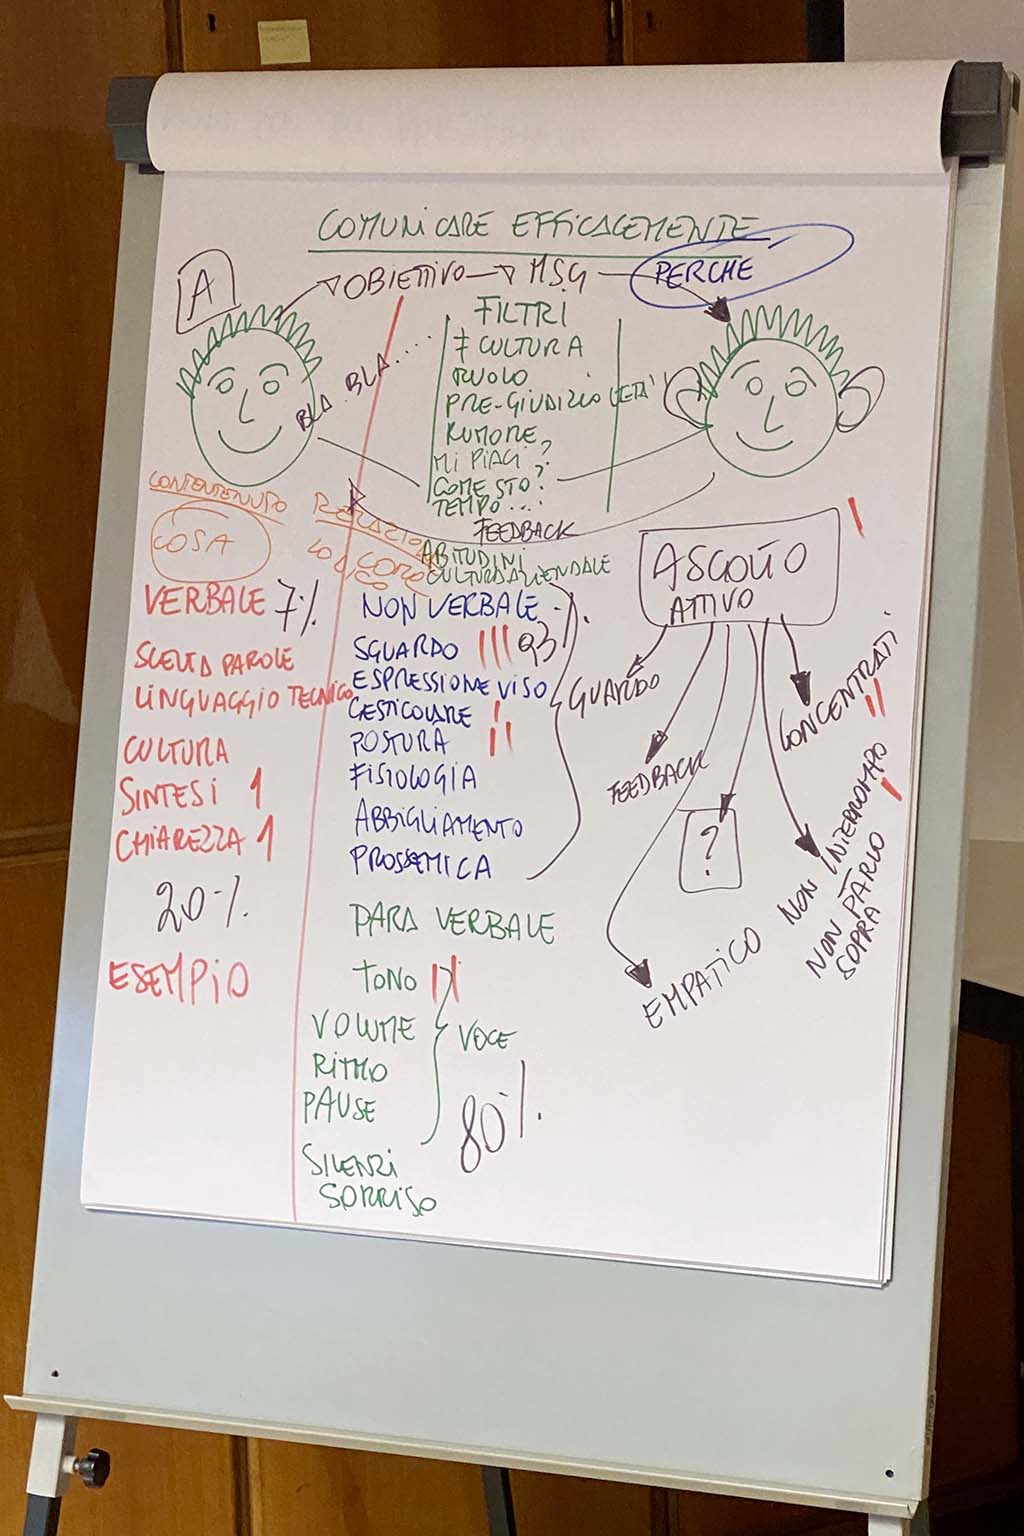 COMUNICARE EFFICACEMENTE
A
OBIETTIVO MSG PERCHE
FILTRI
≠ CULTURA
RUOLO
PRE-GIUDIZIO (ETA'
RUMORE
MI PIACI?
COME STO?
TEMPO...
BLA BLA.....
FEEDBACK
ABITUDINI
CULTURA AZIENDALE
CONTENTENUTO
COSA
VERBALE 7%
SCELTA PAROLE
LINGUAGGIO TECNICO
CULTURA
SINTESI 1
CHIAREZZA 1
20%
ESEMPIO
NON VERBALE
SGUARDO III 93%
ESPRESSIONE VISO
GESTICOLARE I
POSTURA II
FISIOLOGIA
ABBIGLIAMENTO
PROSSEMICA
PARA VERBALE
TONO II
VOLUME
RITMO
PAUSE
VOCE
80%
SILENZI
SORRISO
ASCOLTO
ATTIVO
I
GUARDO
FEEDBACK
?
EMPATICO
CONCENTRATI
II
NON INTERROMPO
I
NON PARLO
SOPRA